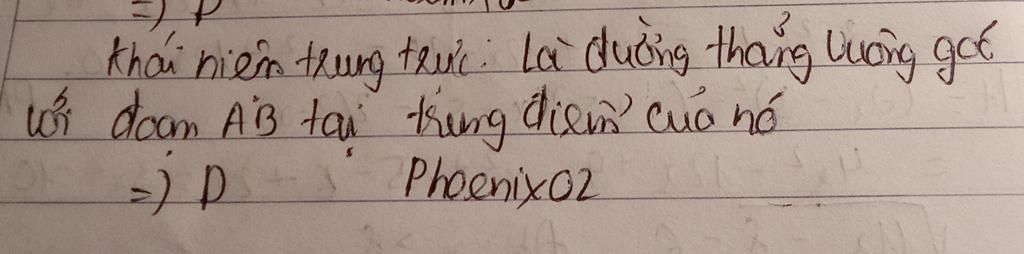 =) D
Khái niệm trung trực: Là đường thẳng vuông góc
với đoạn AB tại trung điểm của nó
=) D Phoenix02